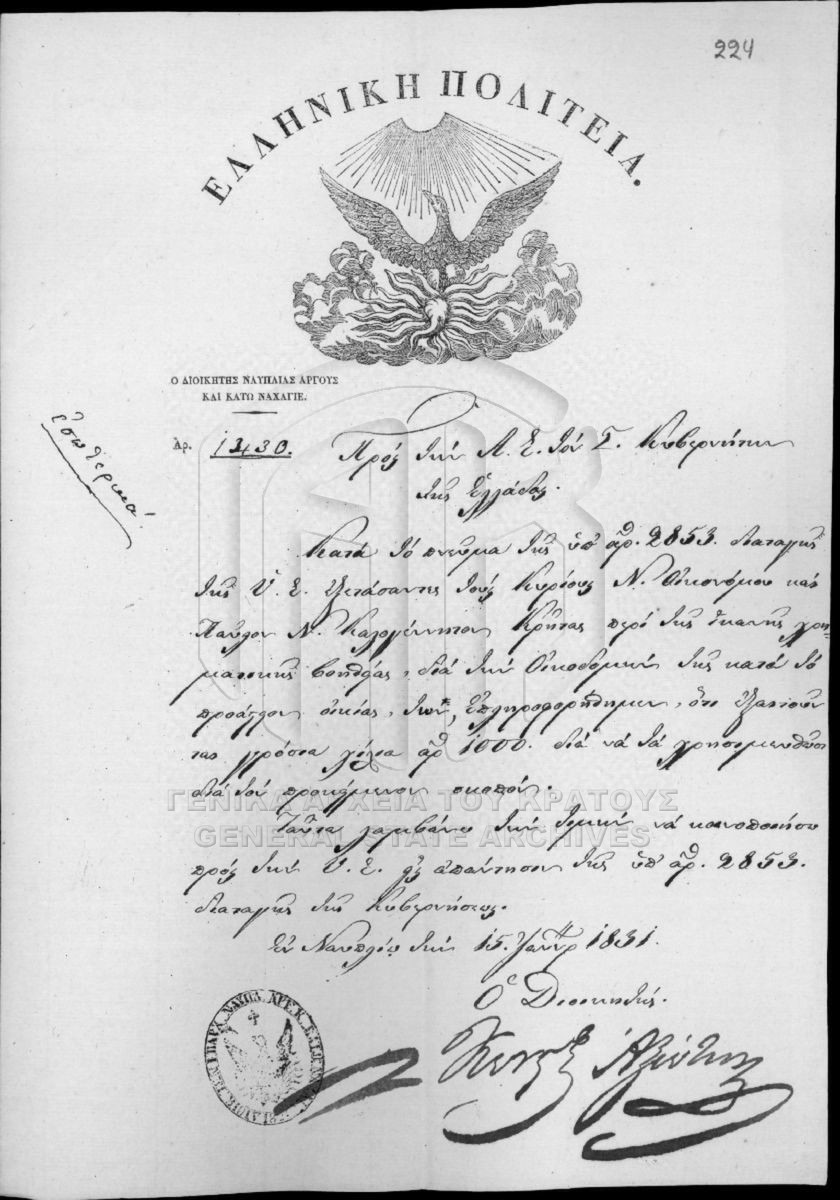 224
ΕΛΛΗΝΙΚΗ ΠΟΛΙΤΕΙΑ.
Ο ΔΙΟΙΚΗΤΗΣ ΝΑΥΠΛΙΑΣ ΑΡΓΟΥΣ
ΚΑΙ ΚΑΤΩ ΝΑΧΑΓΙΕ.
ἐσωτερικά.
Ἀρ. 1430.
Πρὸς τὴν Α. Ε. τὸν Κυβερνήτην
τῆς Ἑλλάδος.
Κατὰ τὸ πνεῦμα τῆς ὑπ' ἀρ. 2853. διαταγῆς
τῆς Υ. Ε. ἐξετάσαντες τοὺς Κυρίους Ν. Οἰκονόμου καὶ
Παῦλον Ν. Καλογέννητον Κρῆτας περὶ τῆς ἱκανῆς χρη-
ματικῆς βοηθείας, διὰ τὴν Οἰκοδομὴν τῆς κατὰ τὸ
προάστειον οἰκίας των, ἐπληροφορήθημεν, ὅτι ἐξαιτοῦν-
ται γρόσια χίλια ἀρ. 1000. διὰ νὰ τὰ χρησιμεύσωσι
διὰ τὸν προκείμενον σκοπόν.
ΓΕΝΙΚΑ ΑΡΧΕΙΑ ΤΟΥ ΚΡΑΤΟΥΣ
GENERAL STATE ARCHIVES
Ταῦτα λαμβάνω τὴν τιμὴν νὰ κοινοποιήσω
πρὸς τὴν Υ. Ε. εἰς ἀπάντησιν τῆς ὑπ' ἀρ. 2853.
διαταγῆς τῆς Κυβερνήσεως.
Ἐν Ναυπλίῳ τὴν 15. Ἰανν. 1831.
Ὁ Διοικητής.
Ἀξιώτης